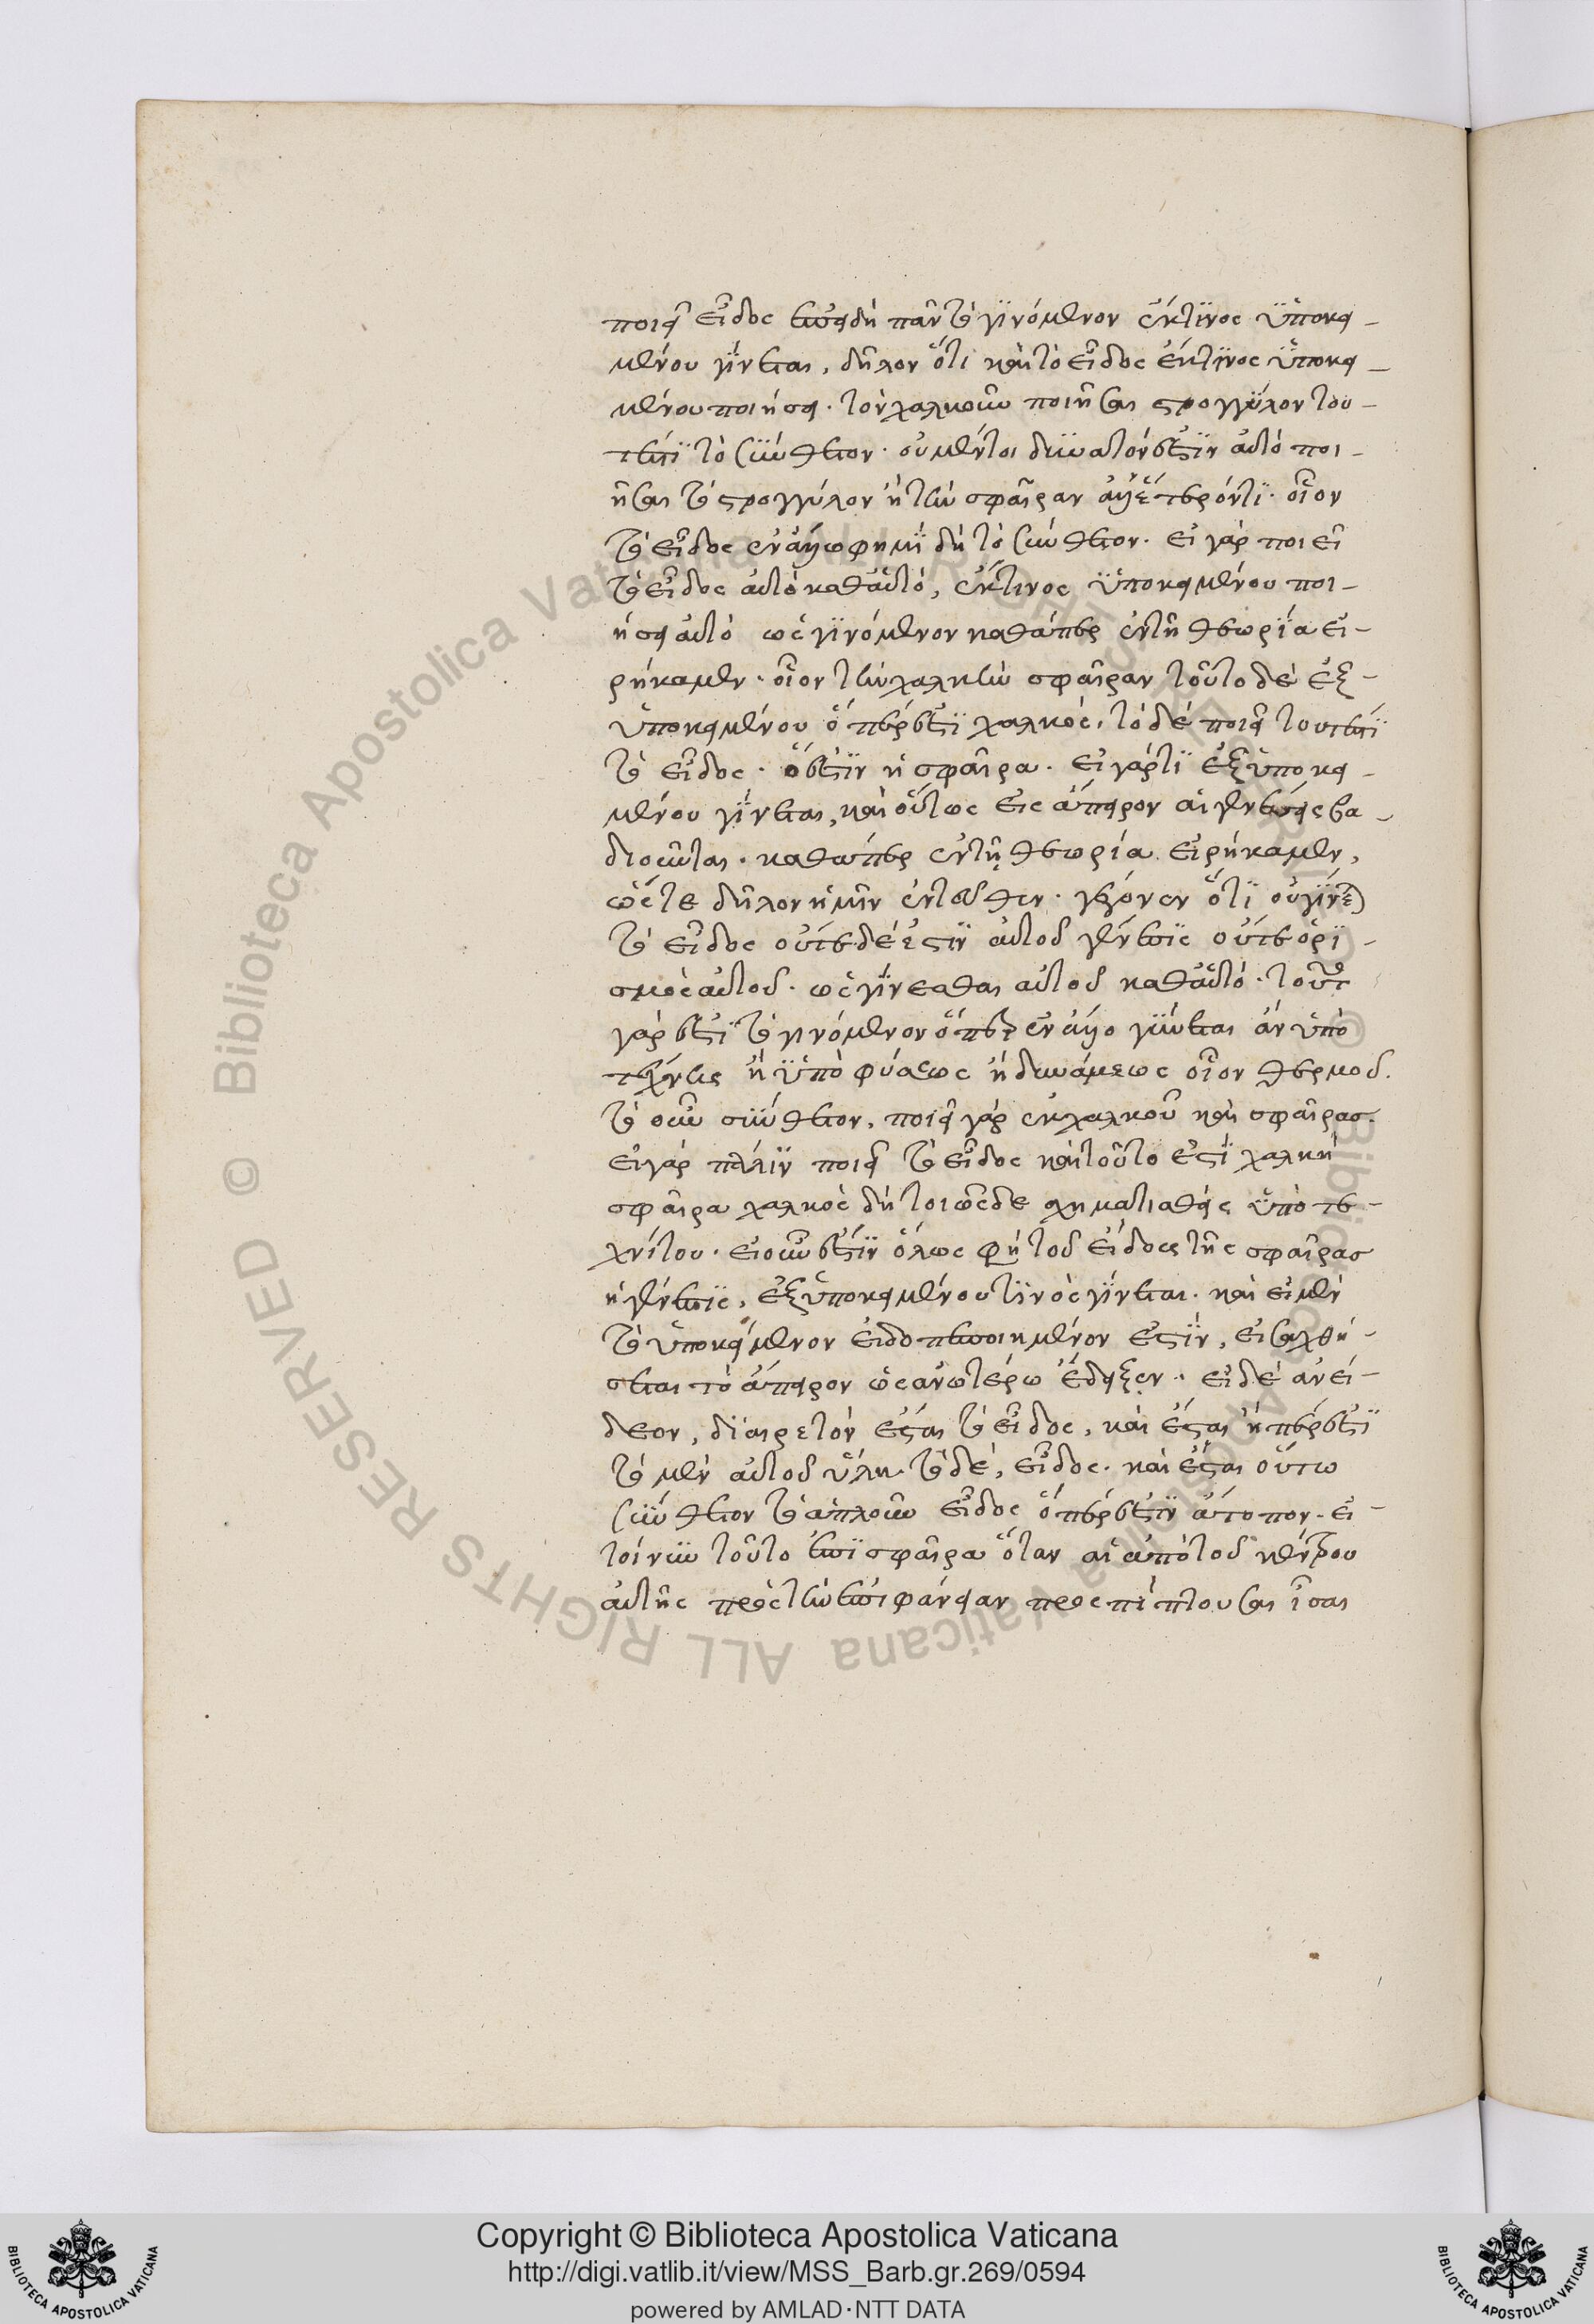 ποιεῖ εἶδος ἐπειδὴ πᾶν τὸ γϊνόμενον ἔκ τϊνος ὑποκει-
μένου γίνεται, δῆλον ὅτι καὶ τὸ εἶδος ἔκ τϊνος ὑποκει-
μένου ποιήσει. τὸν χαλκοῦν ποιῆσαι στρογγύλον του-
τέστι τὸ σύνθετον. οὐ μέντοι δυνατόν ἐστϊν αὐτὸ ποι-
ῆσαι τὸ στρογγύλον ἢ τὴν σφαῖραν ἀλλ' ἕτερόν τϊ. οἷον
τὸ εἶδος ἐν ἄλλω φημὶ δὴ τὸ σύνθετον. εἰ γὰρ ποιεῖ
τὸ εἶδος αὐτὸ καθ' αὑτό, ἔκ τινος ὑποκειμένου ποι-
ήσει αὐτὸ ὡς γϊνόμενον καθάπερ ἐν τῆ θεωρία εἰ-
ρήκαμεν. οἷον τὴν χαλκὴν σφαῖραν τοῦτο δὲ ἐξ-
ὑποκειμένου ὅπερ ἐστὶ χαλκός. τὸ δὲ ποιεῖ τουτέστι
τὸ εἶδος. ὅ ἐστϊν ἡ σφαῖρα. εἰ γάρ τϊ ἐξ ὑποκει-
μένου γίνεται, καὶ οὕτως εἰς ἄπειρον αἱ γενέσεις βα-
διοῦνται. καθάπερ ἐν τῇ θεωρία εἰρήκαμεν,
ὥστε δῆλον ἡμῖν ἐντεῦθεν. γέγονεν ὅτϊ οὐ γίνεται
τὸ εἶδος οὔτε δέ ἐστϊν αὐτοῦ γένεσϊς οὔτε ὁρϊ-
σμὸς αὐτοῦ. ὡς γίνεσθαι αὐτοῦ καθ' αὑτό. τοῦτο
γάρ ἐστϊ τὸ γινόμενον ὅπερ ἐν ἄλλο γίνεται ἂν ὑπὸ
τέχνης ἢ ὑπὸ φύσεως ἢ δυνάμεως οἷον θερμοῦ.
τὸ οὖν σύνθετον, ποιεῖ γὰρ ἐκ χαλκοῦ καὶ σφαίρας.
εἰ γὰρ πάλϊν ποιεῖ τὸ εἶδος καὶ τοῦτο ἐστὶ χαλκὴ
σφαῖρα χαλκὸς δὴ τοιῶσδε σχηματισθεὶς ὑπὸ τε-
χνίτου. εἰ οὖν ἐστϊν ὅλως φη τοῦ εἴδους τῆς σφαίρας
ἡ γένεσϊς, ἐξ ὑποκειμένου τϊνὸς γίνεται. καὶ εἰ μὲν
τὸ ὑποκείμενον εἰδοπεποιημένον ἐστϊν, εἰσαχθή-
σεται τὸ ἄπειρον ὡς ἀνωτέρω ἔδειξεν. εἰ δὲ ἀνεί-
δεον, διαιρετὸν ἔσται τὸ εἶδος, καὶ ἔσται ἥπερ ἐστὶ
τὸ μὲν αὐτοῦ ὕλη. τὸ δέ, εἶδος. καὶ ἔσται οὕτω
σύνθετον τὸ ἁπλοῦν εἶδος ὅπερ ἐστϊν ἄτοπον. εἰ-
τοίνυν τοῦτο ἐστὶ σφαῖρα ὅταν αἱ ἀπὸ τοῦ κέντρου
αὐτῆς πρὸς τὴν ἐπιφάνειαν προσπίπτουσαι ἶσαι